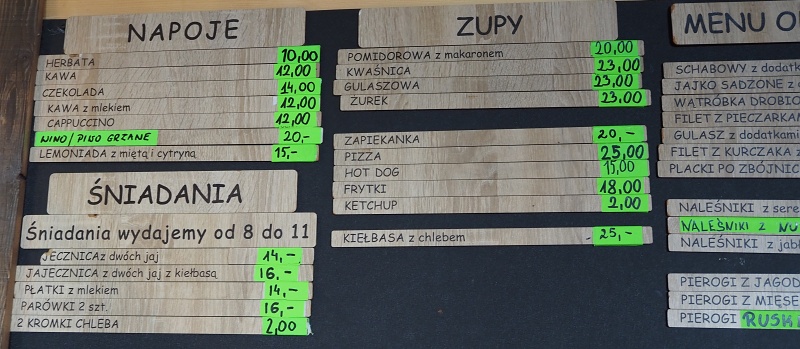 NAPOJE
HERBATA 10,00
KAWA 12,00
CZEKOLADA 14,00
KAWA z mlekiem 12,00
CAPPUCCINO 12,00
WINO/PIWO GRZANE 20,-
LEMONIADA z miętą i cytryną 15,-
ŚNIADANIA
Śniadania wydajemy od 8 do 11
JECZNICA z dwóch jaj 14,-
JAJECZNICA z dwóch jaj z kiełbasą 16,-
PŁATKI z mlekiem 14,-
PARÓWKI 2 szt. 16,-
2 KROMKI CHLEBA 2,00
ZUPY
POMIDOROWA z makaronem 20,00
KWAŚNICA 23,00
GULASZOWA 23,00
ŻUREK 23,00
ZAPIEKANKA 20,-
PIZZA 25,00
HOT DOG 15,00
FRYTKI 18,00
KETCHUP 2,00
KIEŁBASA z chlebem 25,-
MENU
SCHABOWY z
JAJKO SADZONE z
WĄTRÓBKA
FILET Z PIECZARKA
GULASZ z dodatkami
FILET Z KURCZAKA z
PLACKI PO ZBÓJNIC
NALEŚNIKI z sere
NALEŚNIKI z
NALEŚNIKI z jabł
PIEROGI Z JAGOD
PIEROGI Z MIĘSE
PIEROGI RUSK